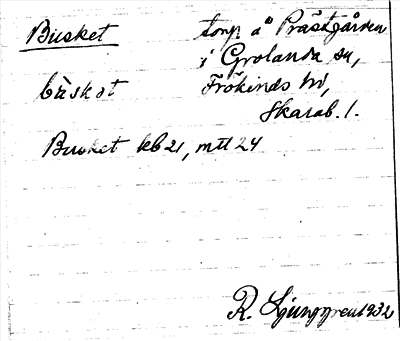 Busket torp å Prästgården
i Grolanda sn,
bùskət Frökinds hd,
Skarab. l.
Busket kb 21, mtl 24
R. Ljunggren 1932